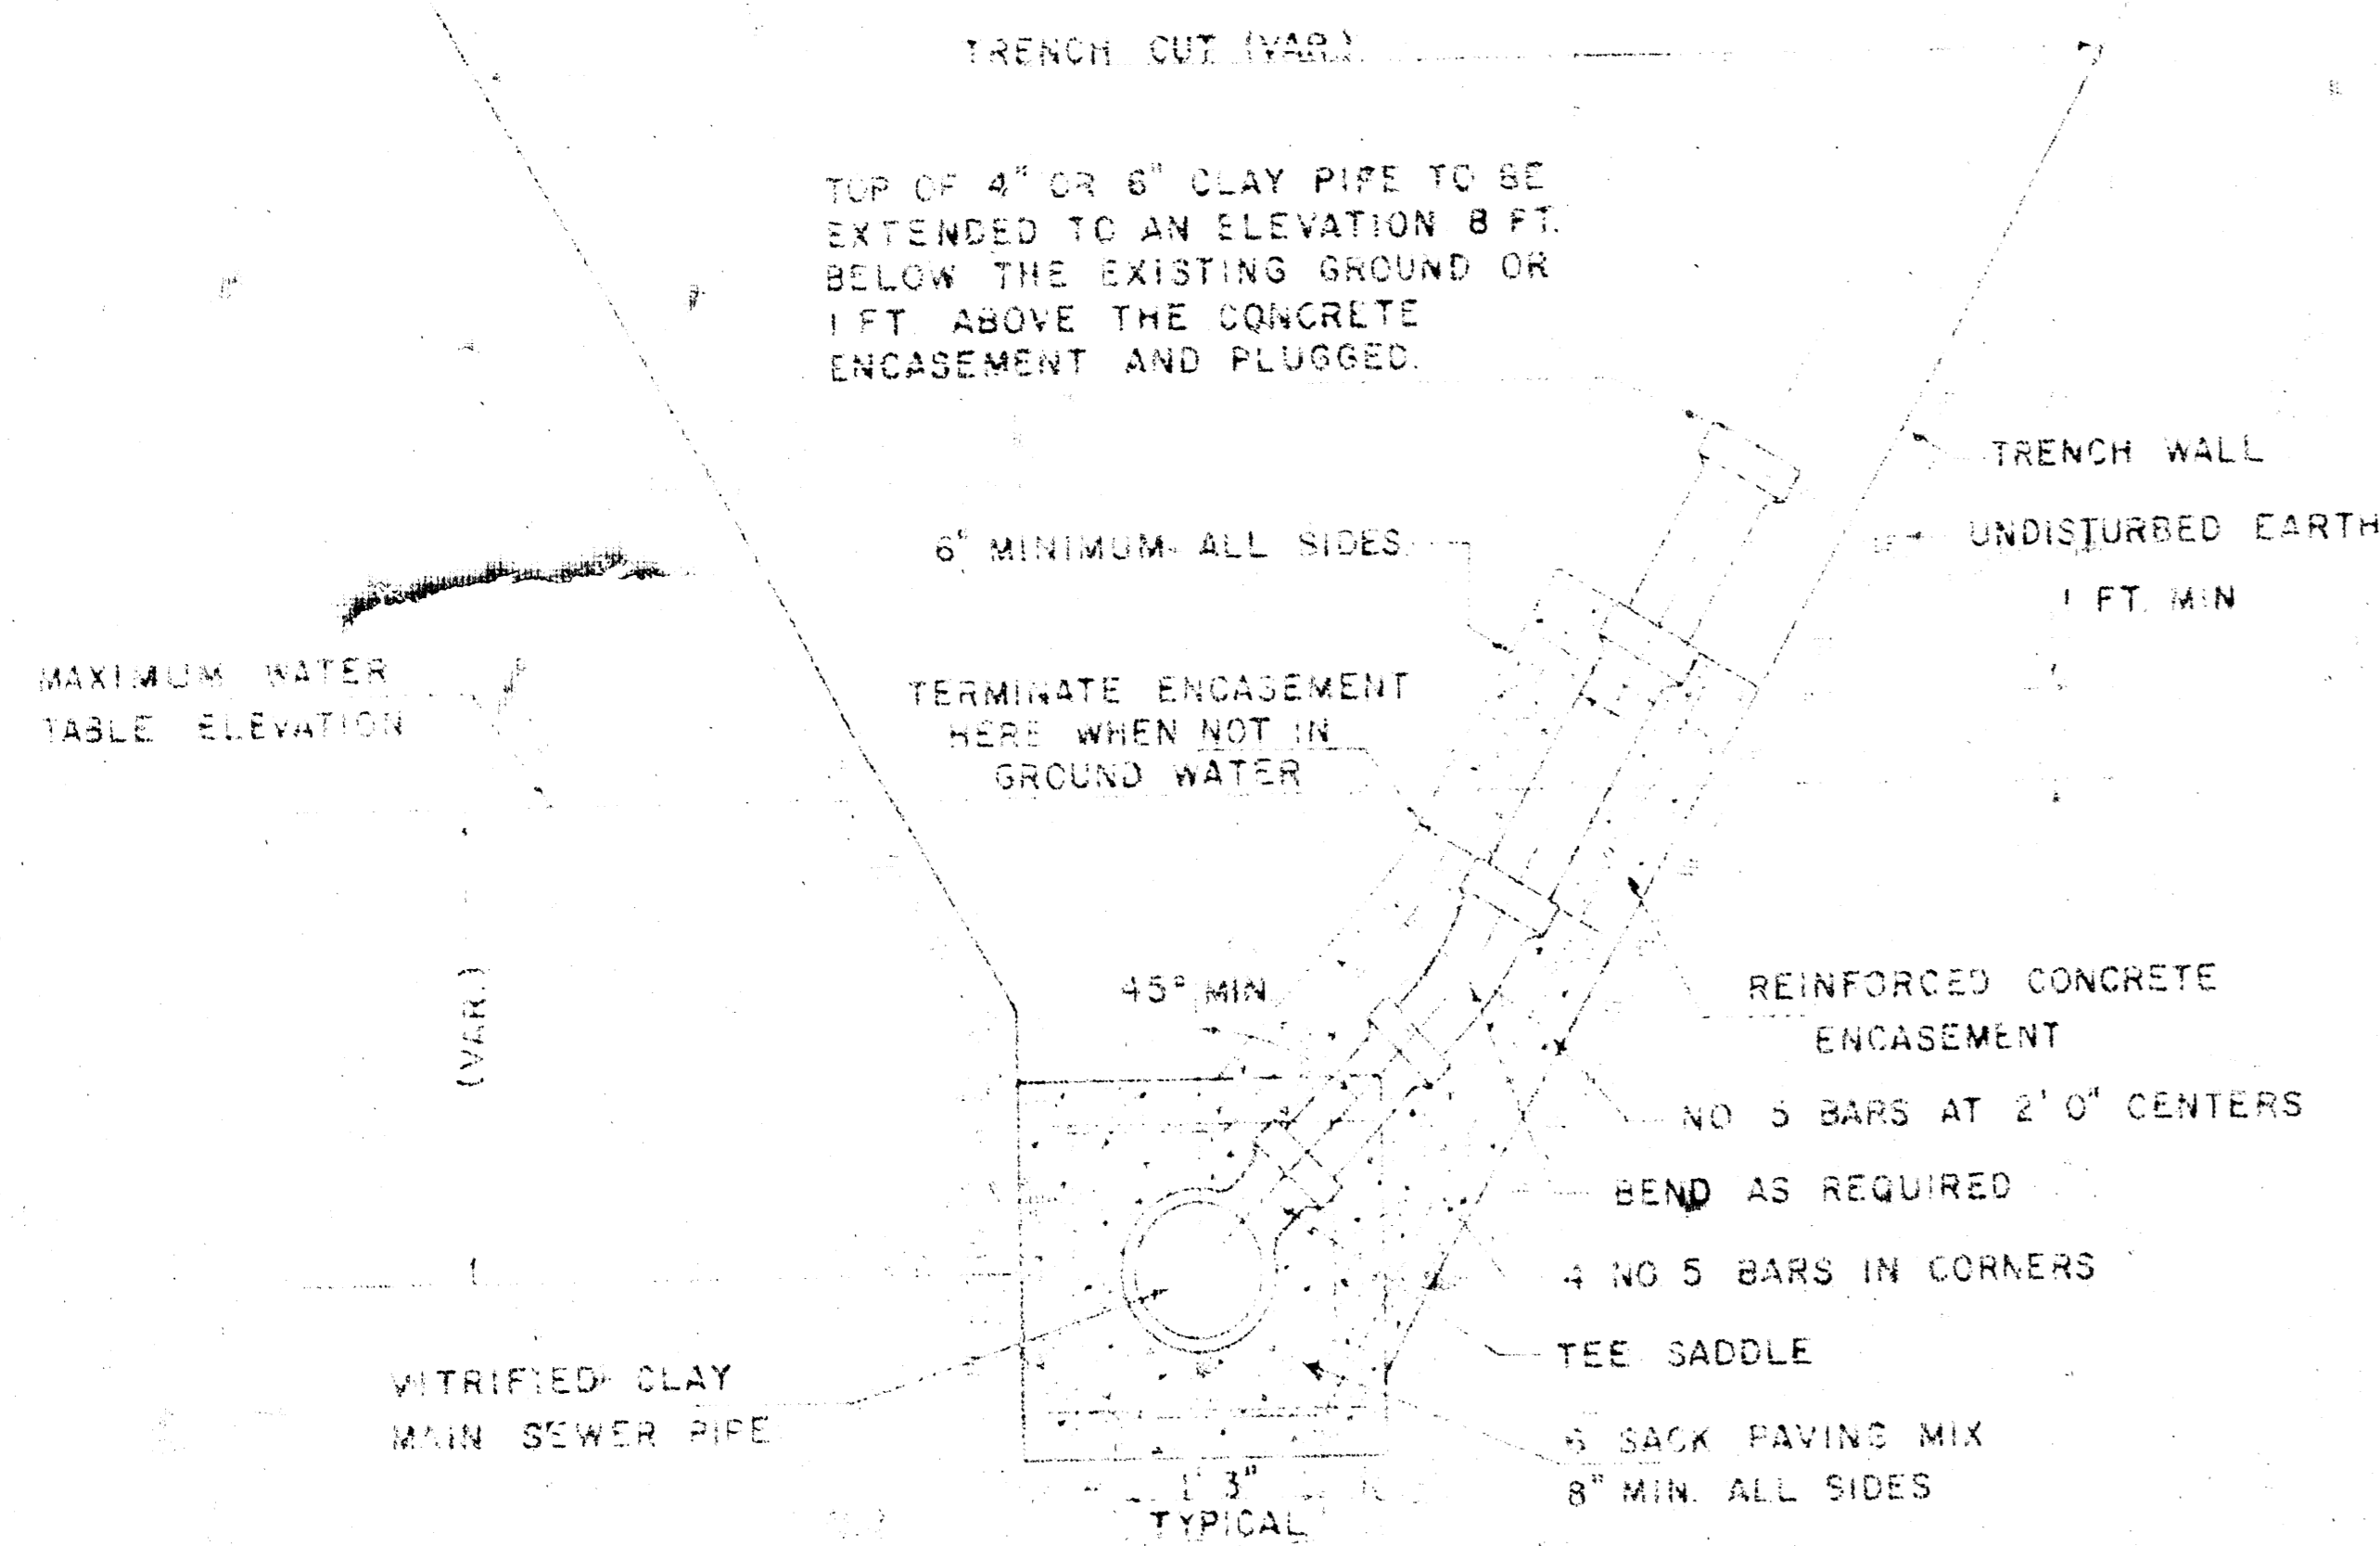 TRENCH CUT (VAR.)
TOP OF 4" OR 6" CLAY PIPE TO BE
EXTENDED TO AN ELEVATION 8 FT.
BELOW THE EXISTING GROUND OR
1 FT. ABOVE THE CONCRETE
ENCASEMENT AND PLUGGED.
TRENCH WALL
UNDISTURBED EARTH
1 FT. MIN
6" MINIMUM ALL SIDES
MAXIMUM WATER
TABLE ELEVATION
TERMINATE ENCASEMENT
HERE WHEN NOT IN
GROUND WATER
(VAR.)
45° MIN.
REINFORCED CONCRETE
ENCASEMENT
NO 5 BARS AT 2' 0" CENTERS
BEND AS REQUIRED
4 NO 5 BARS IN CORNERS
TEE SADDLE
VITRIFIED CLAY
MAIN SEWER PIPE
6 SACK PAVING MIX
8" MIN. ALL SIDES
1' 3"
TYPICAL